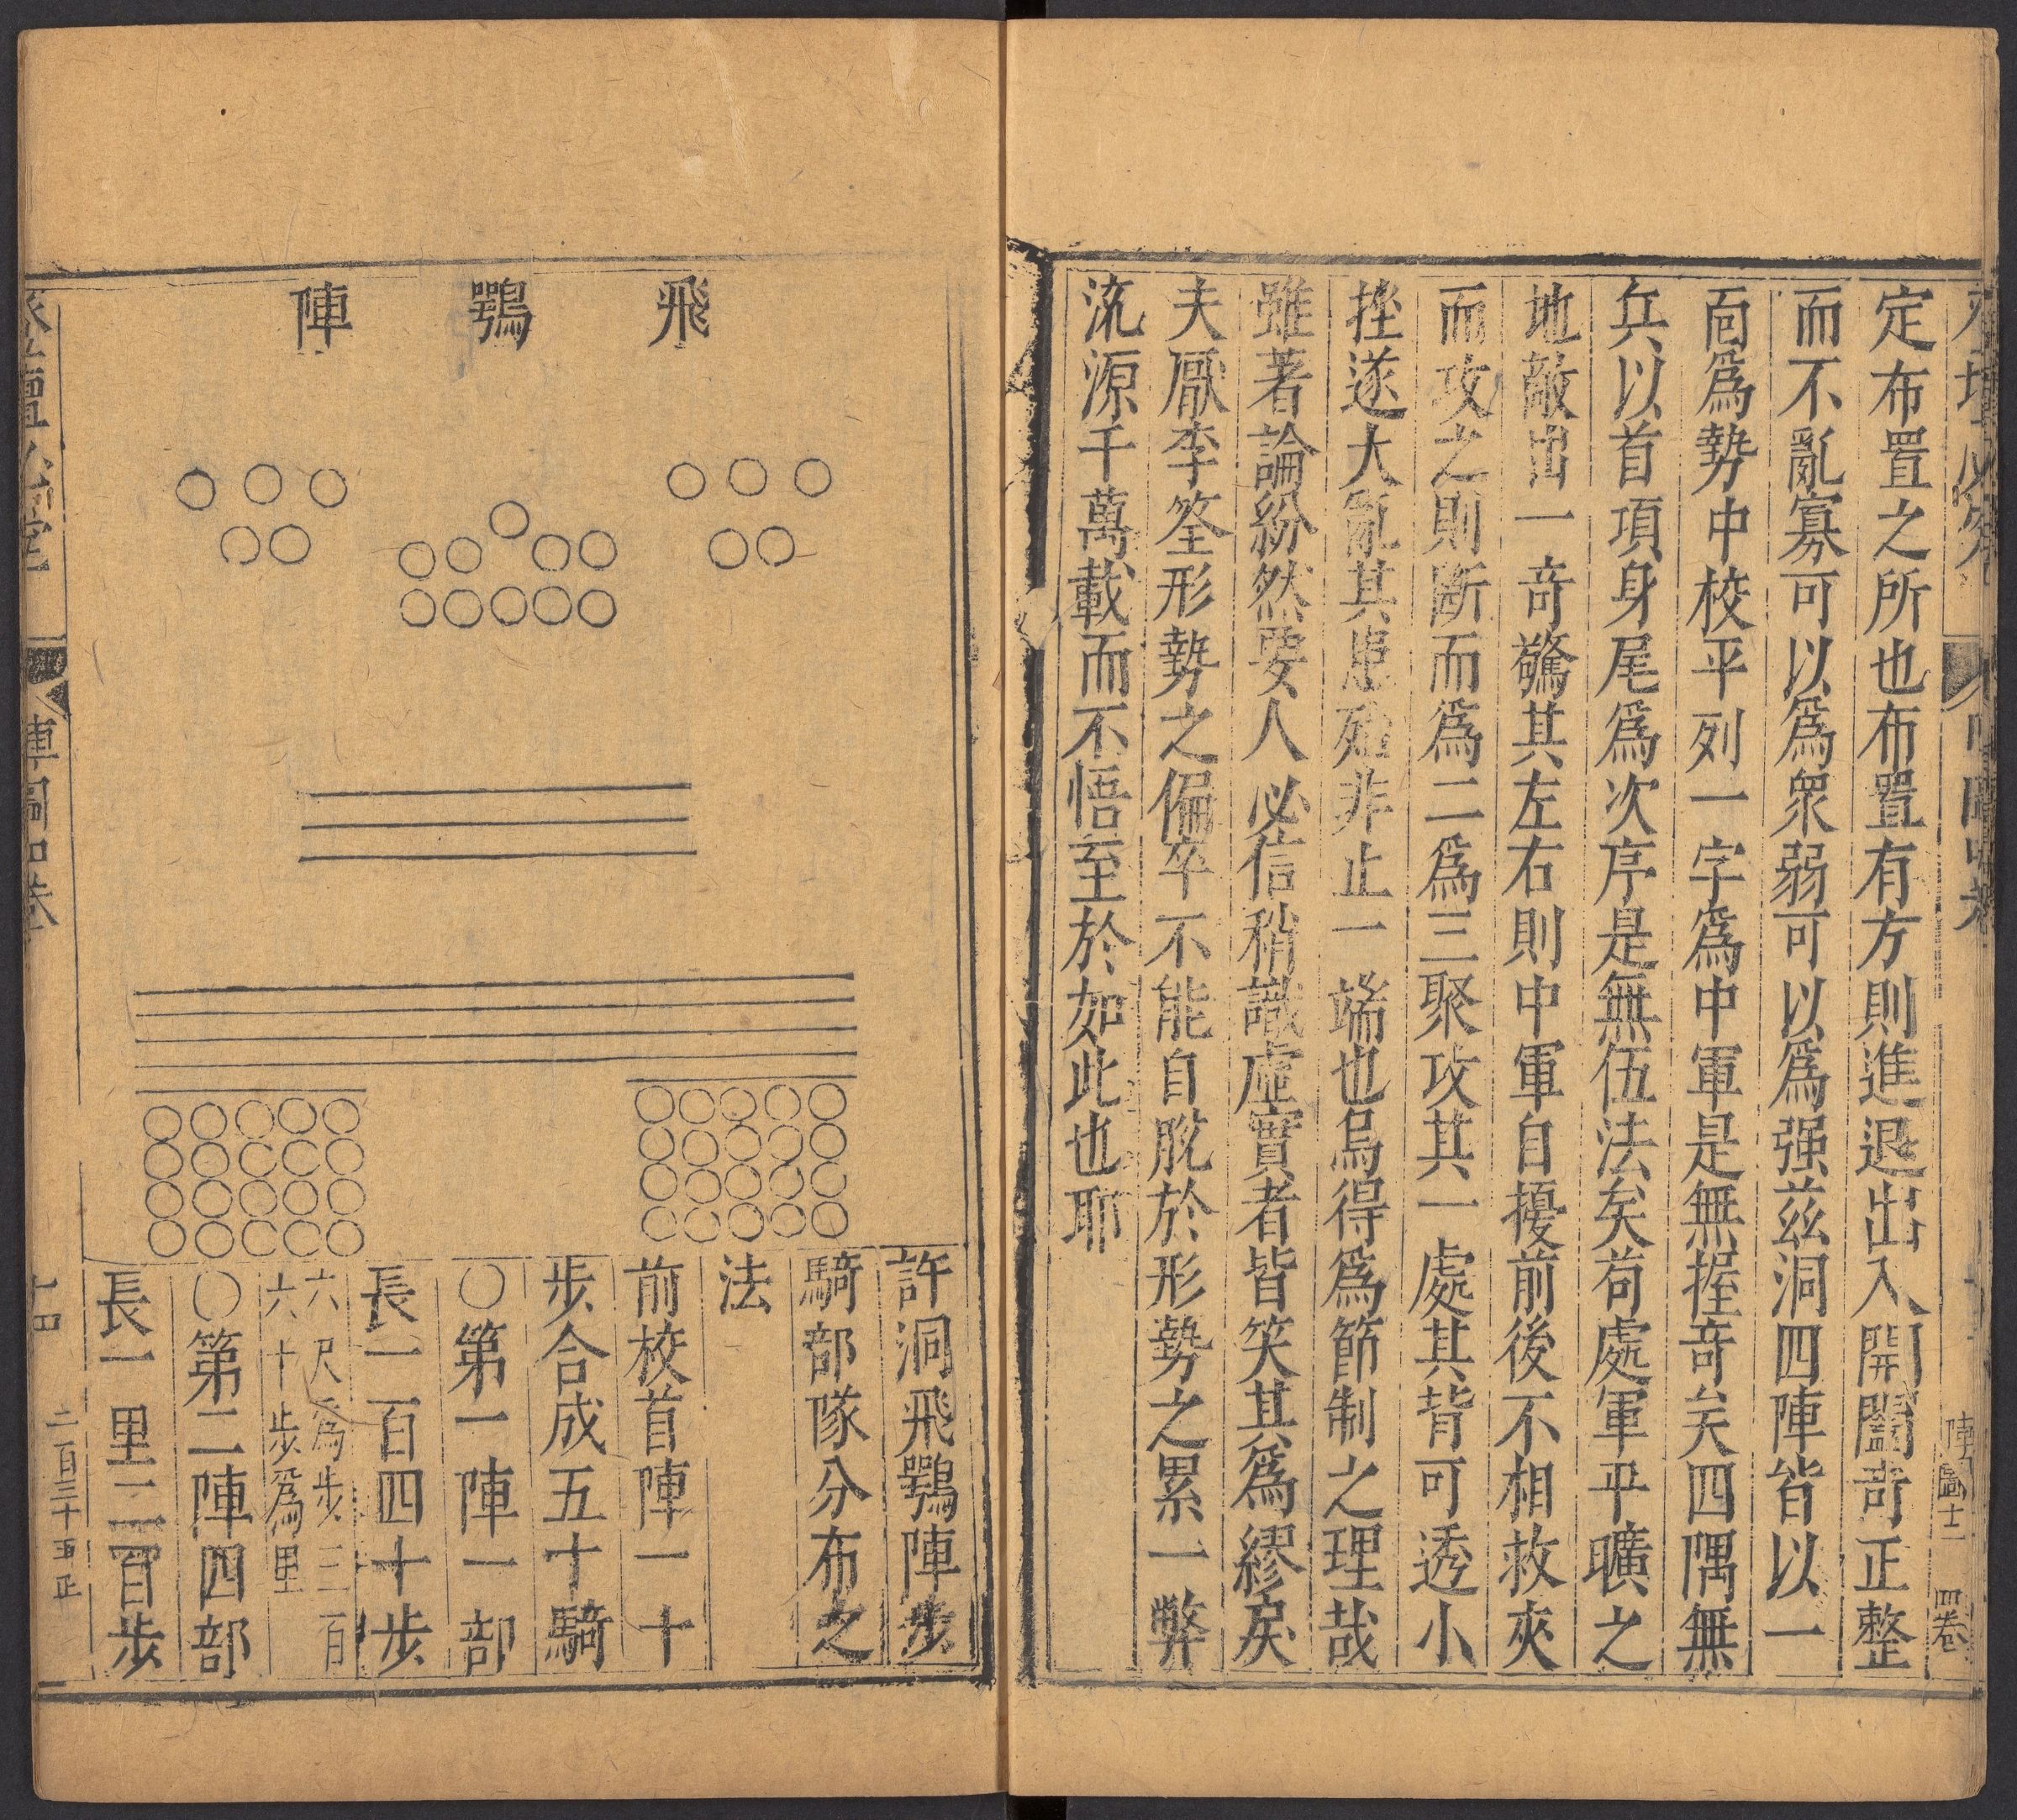 定布置之所也布置有方則進退出入開闔奇正整
而不亂寡可以爲衆弱可以爲强兹洞四陣皆以一
面爲勢中校平列一字爲中軍是無握奇矣四隅無
兵以首項身尾爲次序是無伍法矣苟處軍平曠之
地敵出一奇驚其左右則中軍自擾前後不相救夾
而攻之則斷而爲二爲三聚攻其一處其背可透小
挫遂大亂其患殆非止一端也烏得爲節制之理哉
雖著論紛然要人必信稍識虛實者皆笑其爲繆戾
夫厭李筌形勢之偏卒不能自脫於形勢之累一弊
流源千萬載而不悟至於如此也耶
陣圖十二 四卷
飛鶚陣
許洞飛鶚陣步
騎部隊分布之
法
前校首陣一十
步合成五十騎
○第一陣一部
長一百四十步
六尺爲步三百
六十步爲里
○第二陣四部
長一里二百步
陣圖四卷
十四
二百三十五正